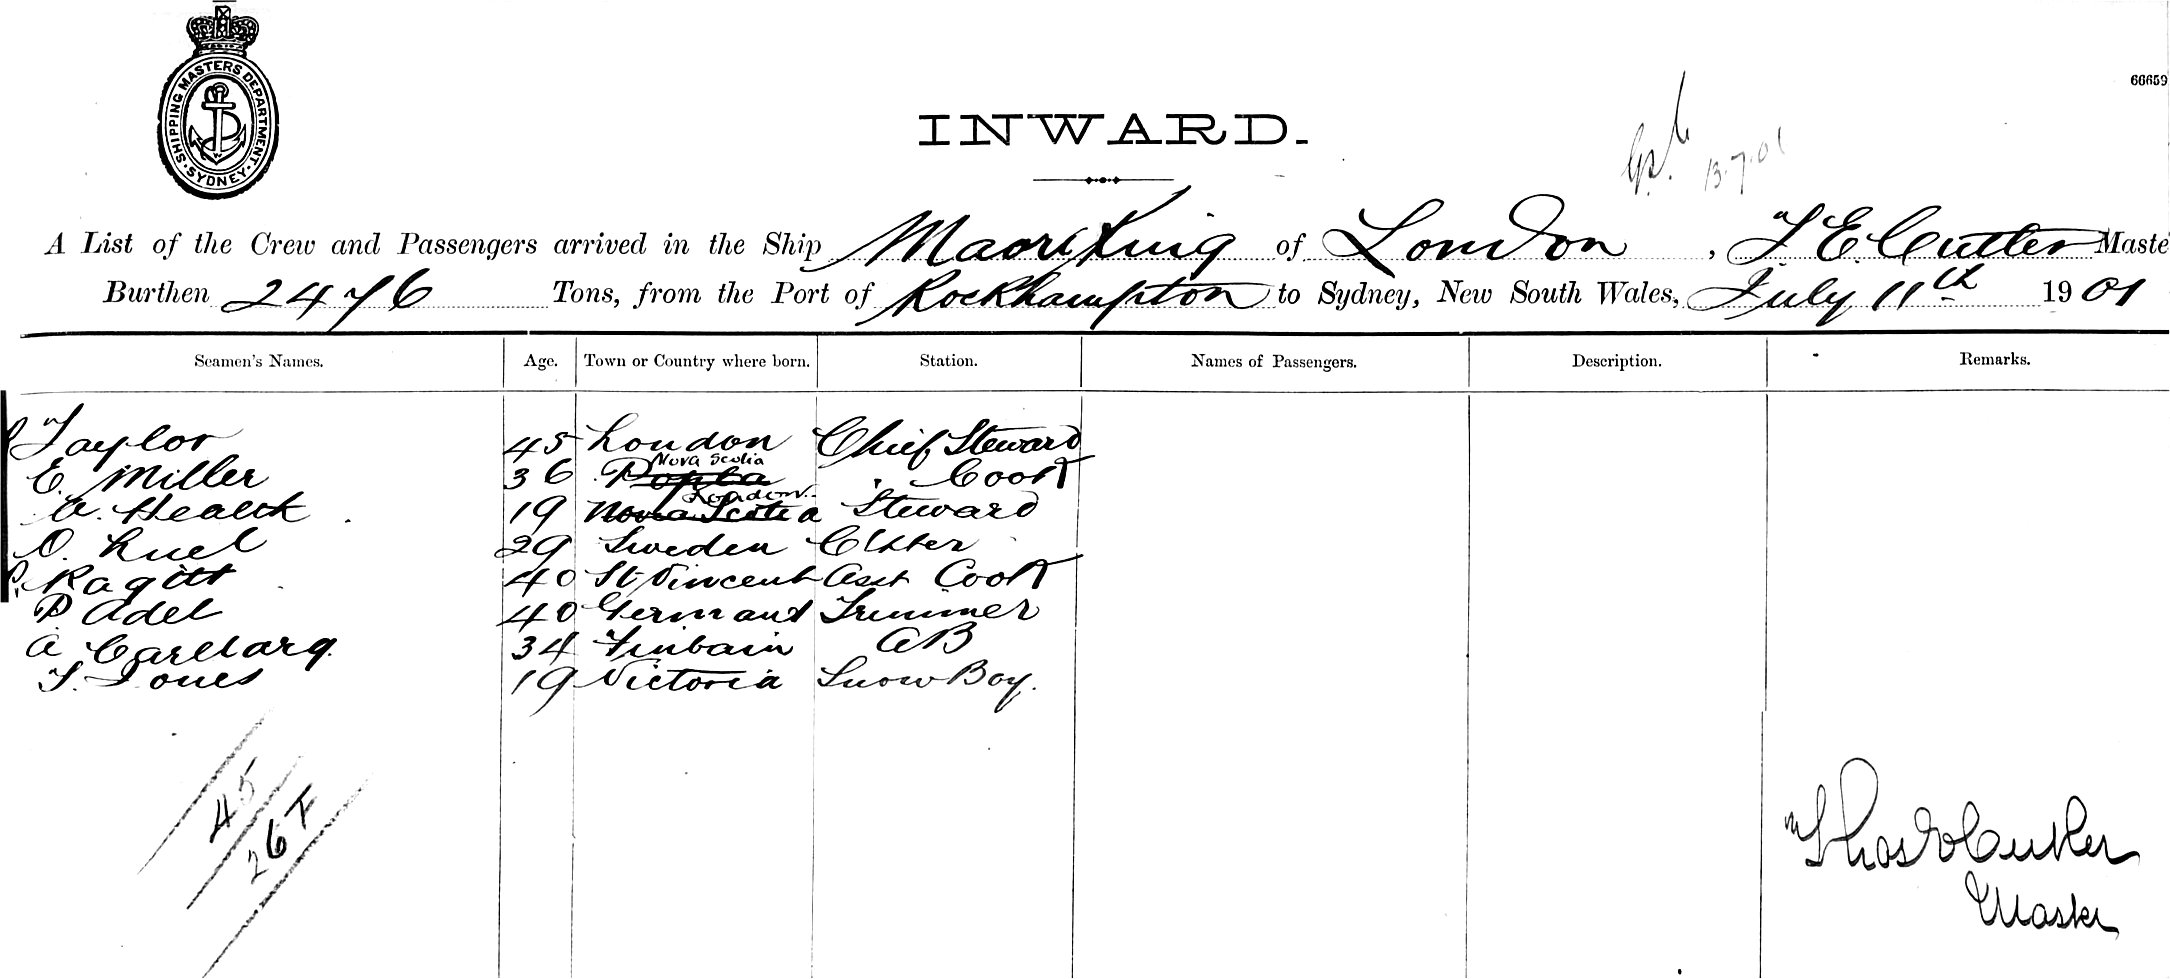 SHIPPING MASTERS DEPARTMENT. SYDNEY
66659
INWARD.
13.7.01
A List of the Crew and Passengers arrived in the Ship Maori King of London, T. E. Cutler Maste
Burthen 2476 Tons, from the Port of Rockhampton to Sydney, New South Wales, July 11th 1901
Seamen's Names. Age. Town or Country where born. Station. Names of Passengers. Description. Remarks.
Taylor 45 London Chief Steward
E. Miller 36 Nova Scotia Cook
19 London Nova Scotia Steward
O. 29 Sweden
40 St Vincent Asst Cook
P Adel 40 Germany Trimmer
A 34 AB
T. Jones 19 Victoria Boy.
45
26 F
Thos E Cutler
Master